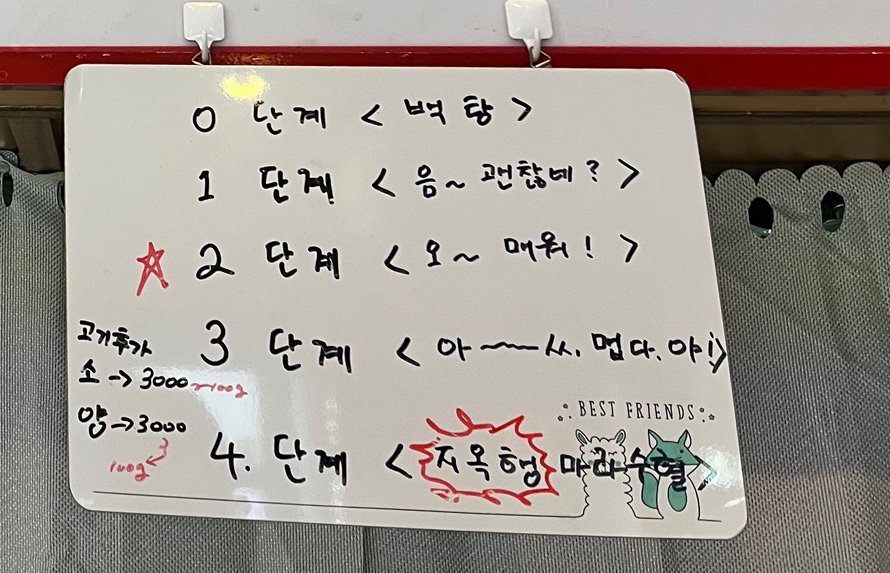 0 단계 < 백탕 >
1 단계 < 음~ 괜찮네? >
☆ 2 단계 < 오~ 매워! >
3 단계 < 아~~씨. 멉다. 야!>
고기추가
소 → 3000 ~100g
양 → 3000
100g
BEST FRIENDS
4. 단계 < 지옥형 마라수혈 >